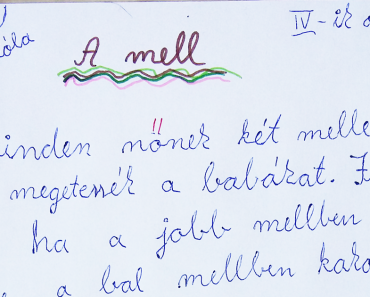 óla IV-ik o
A mell
inden nőnek két melle
megetessék a babákat.
ha a jobb mellben
a bal mellben kaka